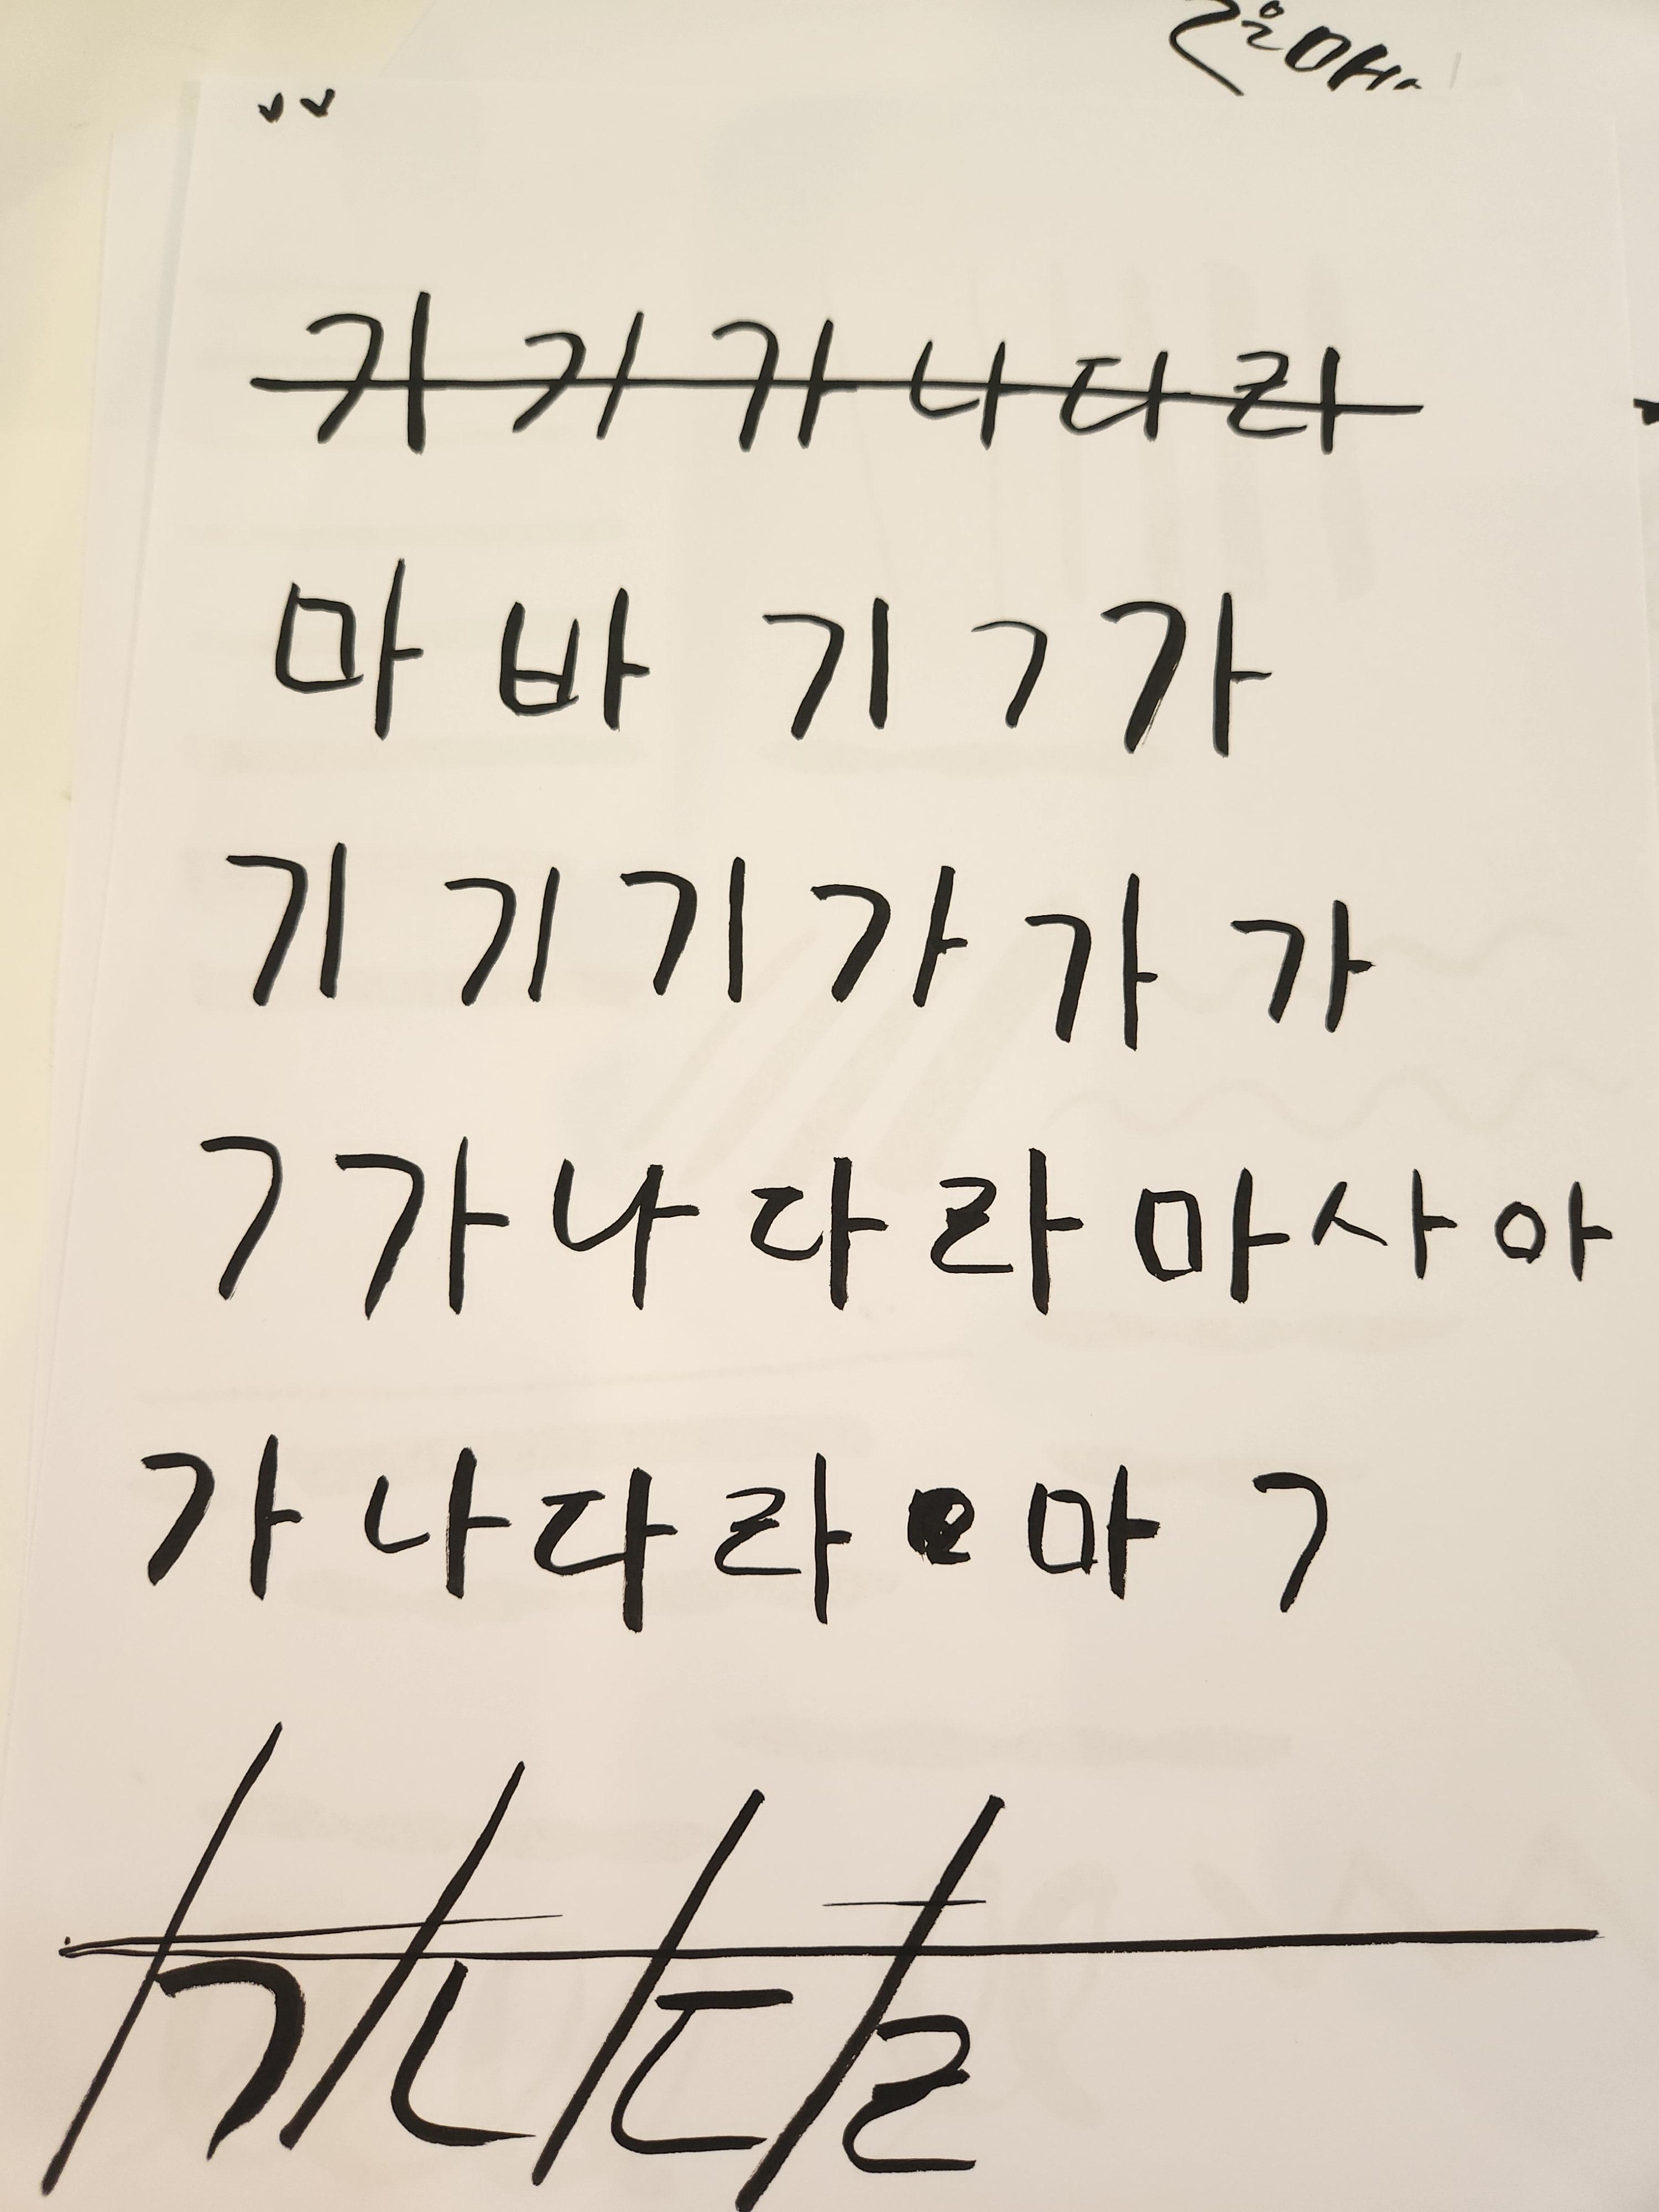 가 가 가 나 다 라
마 바 기 ㄱ 가
기 기 기 가 가 가
ㄱ 가 나 다 라 마 사 아
가 나 다 라 마 ㄱ
ㄱ ㄴ ㄷ ㄹ